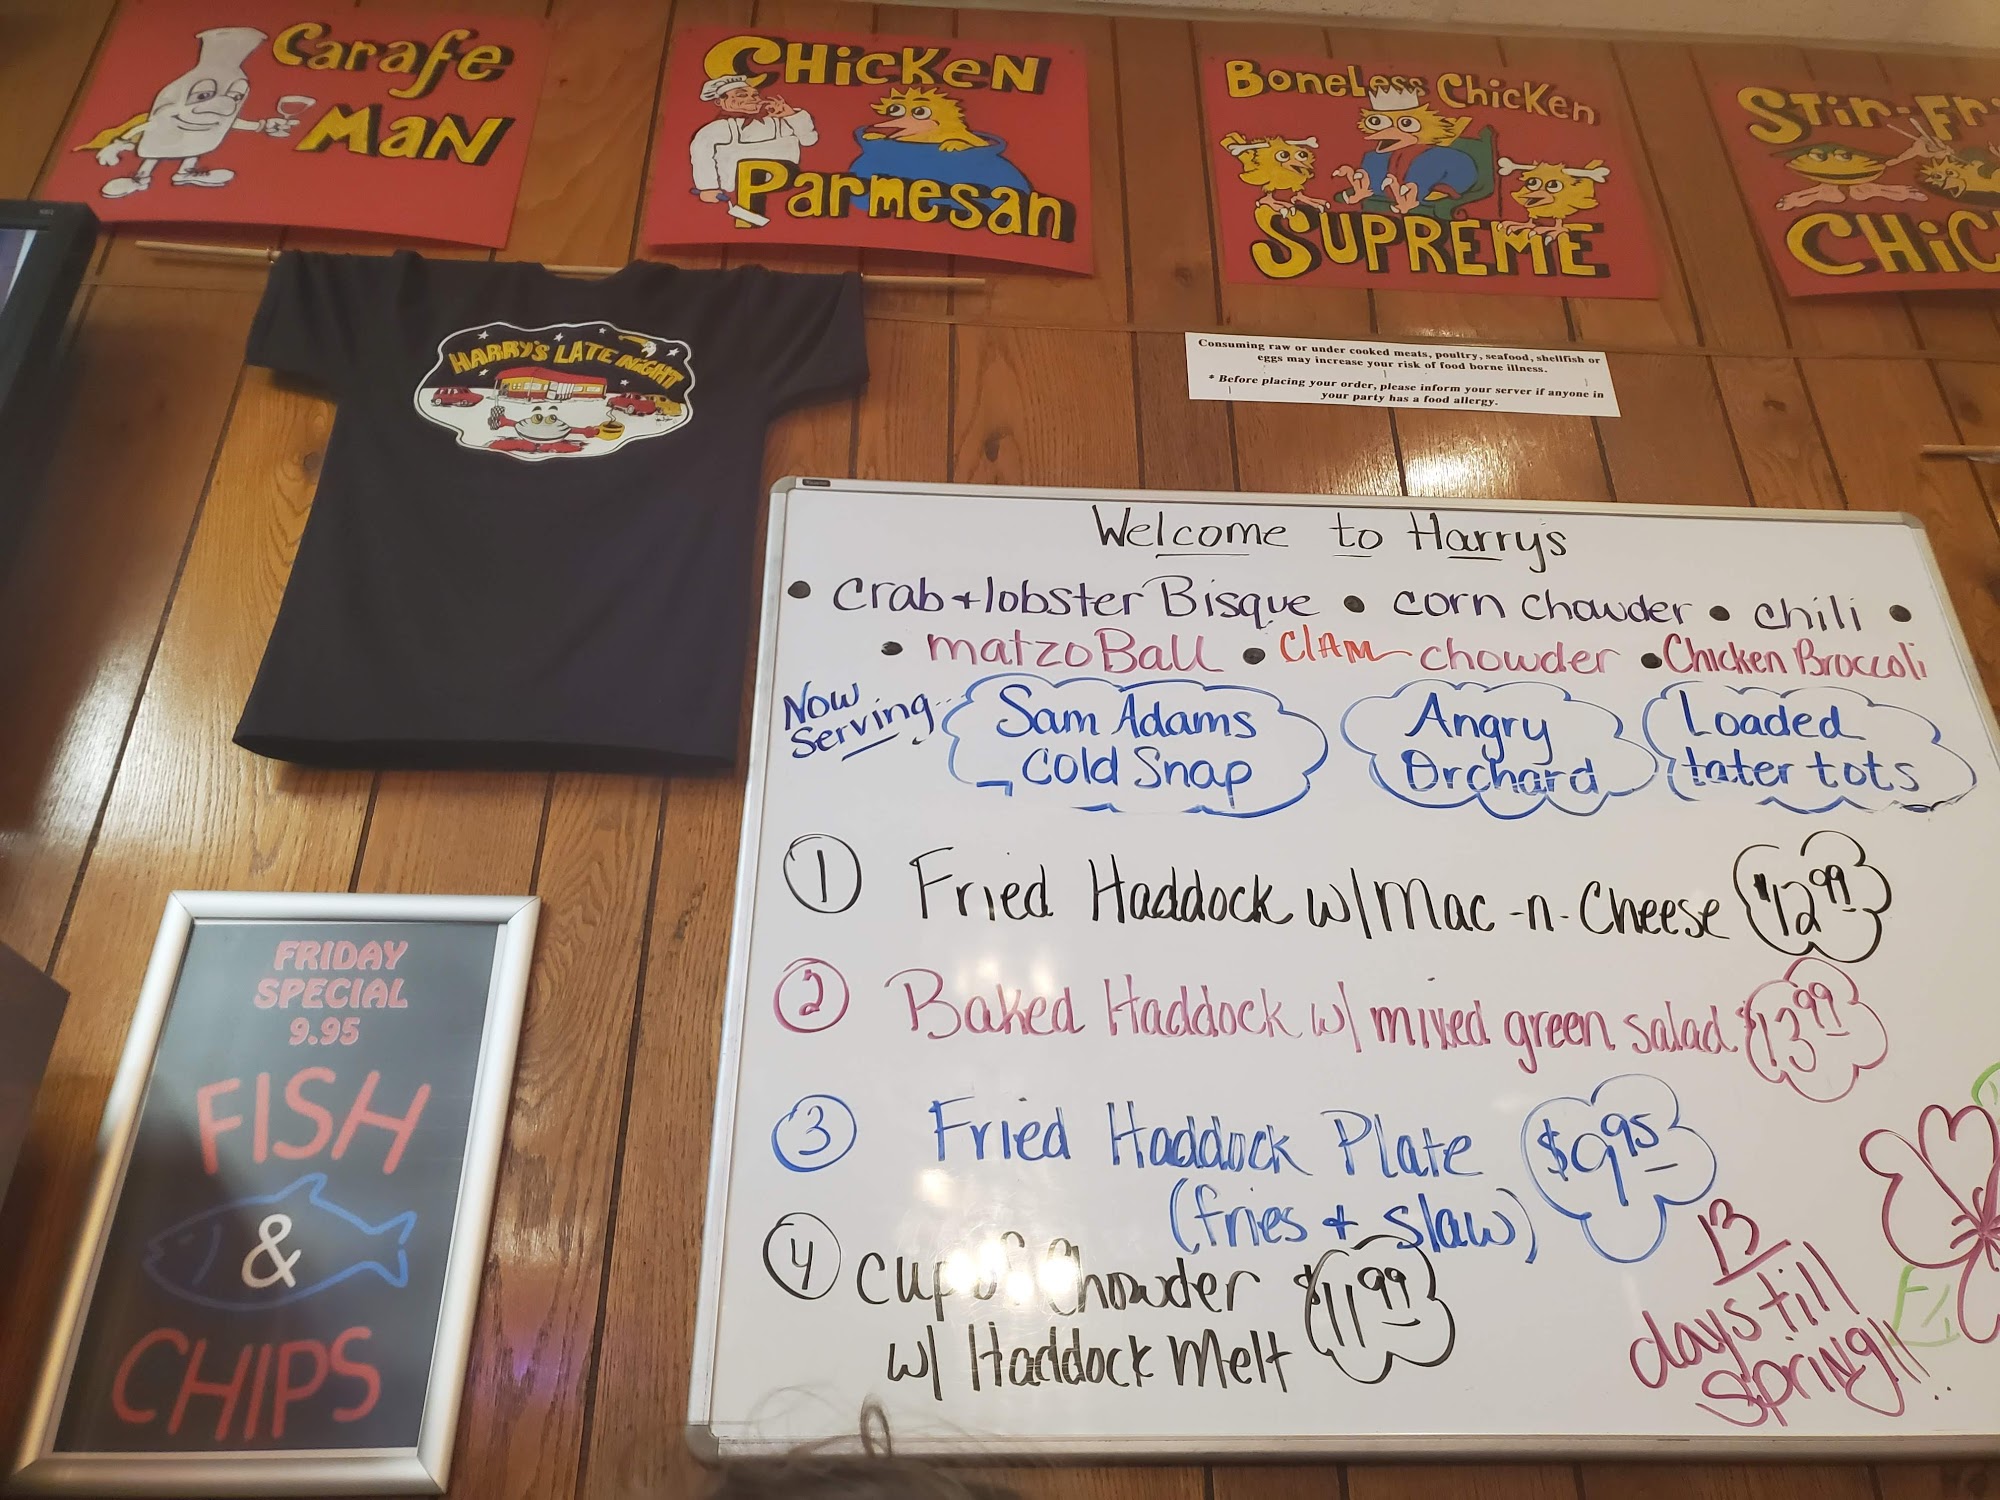 Carafe
Man
Chicken
Parmesan
Boneless Chicken
Supreme
HARRY'S LATE NIGHT
Consuming raw or under cooked meats, poultry, seafood, shellfish or
eggs may increase your risk of food borne illness.
* Before placing your order, please inform your server if anyone in
your party has a food allergy.
Welcome to Harry's
• crab + lobster Bisque • corn chowder • chili •
• matzo Ball • CLAM chowder • Chicken Broccoli
Now
Serving...
Sam Adams
Cold Snap
Angry
Orchard
Loaded
tater tots
1 Fried Haddock w/ Mac-n-Cheese $12.99
2 Baked Haddock w/ mixed green salad $13.99
3 Fried Haddock Plate $9.95
(fries + slaw)
4 cup of Chowder $11.99
w/ Haddock Melt
13
days till
spring!!
FRIDAY
SPECIAL
9.95
FISH
&
CHIPS